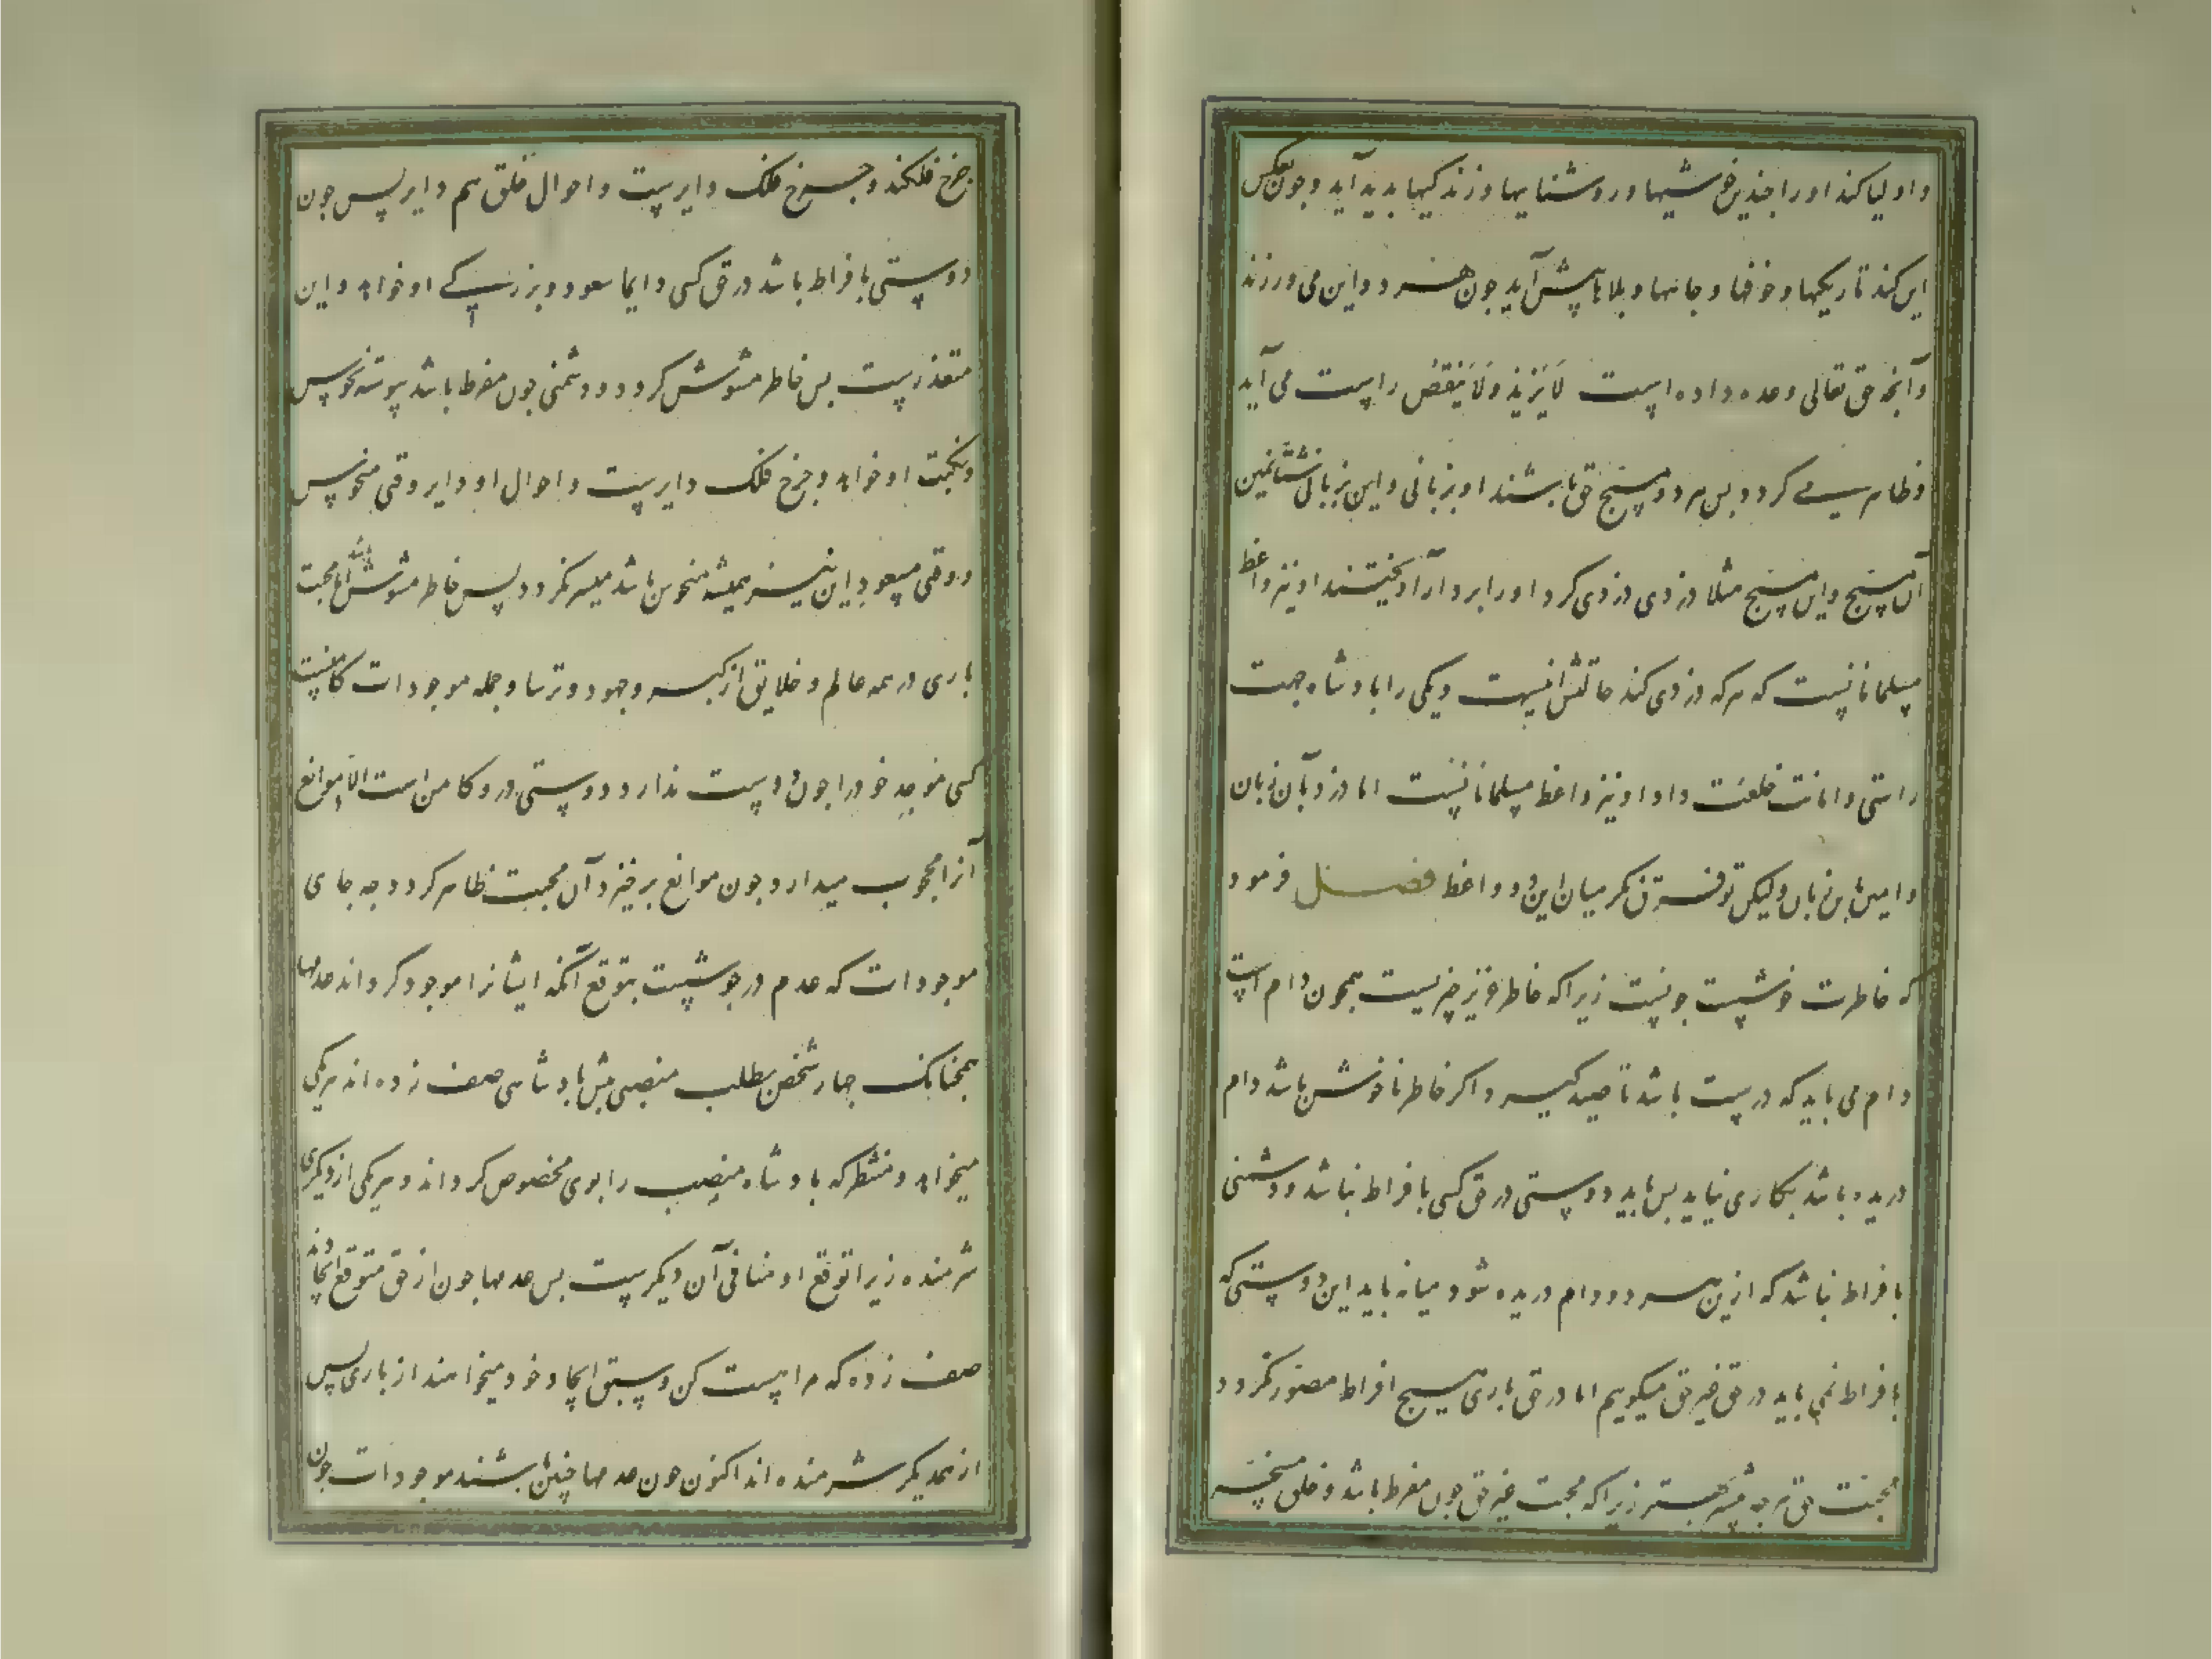 و اولیا کند او را چندین خوشیها و روشناییها و زندگیها بدید آید و چون بعکس
این کند تاریکیها و خوفها و چاهها و بلاها پیش آید چون هر دو این می ورزند
و آنچه حق تعالی وعده داده است لَایَزِیْدُ وَلَایَنْقُصُ راست می آید
و ظاهر می گردد بس هر دو مسبح حق باشند او بزبانی و این بزبانی شَتَّانَ بین
آن مسبح و این مسبح مثلا دزدی دزدی کرد او را بر دار آویختند او نیز واعظ
مسلمانانست که هر که دزدی کند حالش اینست و یکی را پادشاه جهت
راستی و امانت خلعت داد او نیز واعظ مسلمانانست اما دزد بآن زبان
و امین باین زبان ولیکن تو فرق نگر میان این دو واعظ فصل فرمود
که خاطرت خوشست چونست زیرا که خاطر عزیز چیزیست همچون دام است
دام می باید که درست باشد تا صید گیرد و اگر خاطر ناخوش باشد دام
دریده باشد بکاری نیاید بس باید دوستی در حق کسی بافراط نباشد و دشمنی
بافراط نباشد که ازین هر دو دام دریده شود میانه باید این دوستی که
بافراط نمی باید در حق غیر حق میگویم اما در حق باری هیچ افراط مصور نگردد
محبت حق هر چه بیشتر بهتر زیرا که محبت غیر حق چون مفرط باشد و خلق مسخر
چرخ فلکند و چرخ فلک دایرست و احوال خلق هم دایر بس چون
دوستی بافراط باشد در حق کسی دایما سعود و بزرگی او خواهد و این
متعذرست بس خاطر مشوش گردد و دشمنی چون مفرط باشد پیوسته نحوس
و نکبت او خواهد و چرخ فلک دایرست و احوال او دایر وقتی منحوس
و وقتی مسعود این نیز همیشه منحوس باشد میسر نگردد پس خاطر مشوش باشد اما محبت
باری در همه عالم و خلایق از گبر و جهود و ترسا و جمله موجودات کامنست
کسی موجد خود را چون دوست ندارد دوستی درو کامن است الا موانع
آنرا محجوب میدارد چون موانع برخیزد آن محبت ظاهر گردد چه جای
موجودات که عدم در جوشست بتوقع آنکه ایشانرا موجود گرداند عدمها
همچنانک چهار شخص بطلب منصبی پیش پادشاهی صف زده اند هر یکی
میخواهد و منتظر که پادشاه منصب را بوی مخصوص گرداند و هر یکی از دیگری
شرمنده زیرا توقع او منافی آن دیگرست بس عدمها چون از حق متوقع ایجادند
صف زده که مرا هست کن و سبق ایجاد خود میخواهند از باری بس
از همدیگر شرمنده اند اکنون چون عدمها چنین باشند موجودات چون